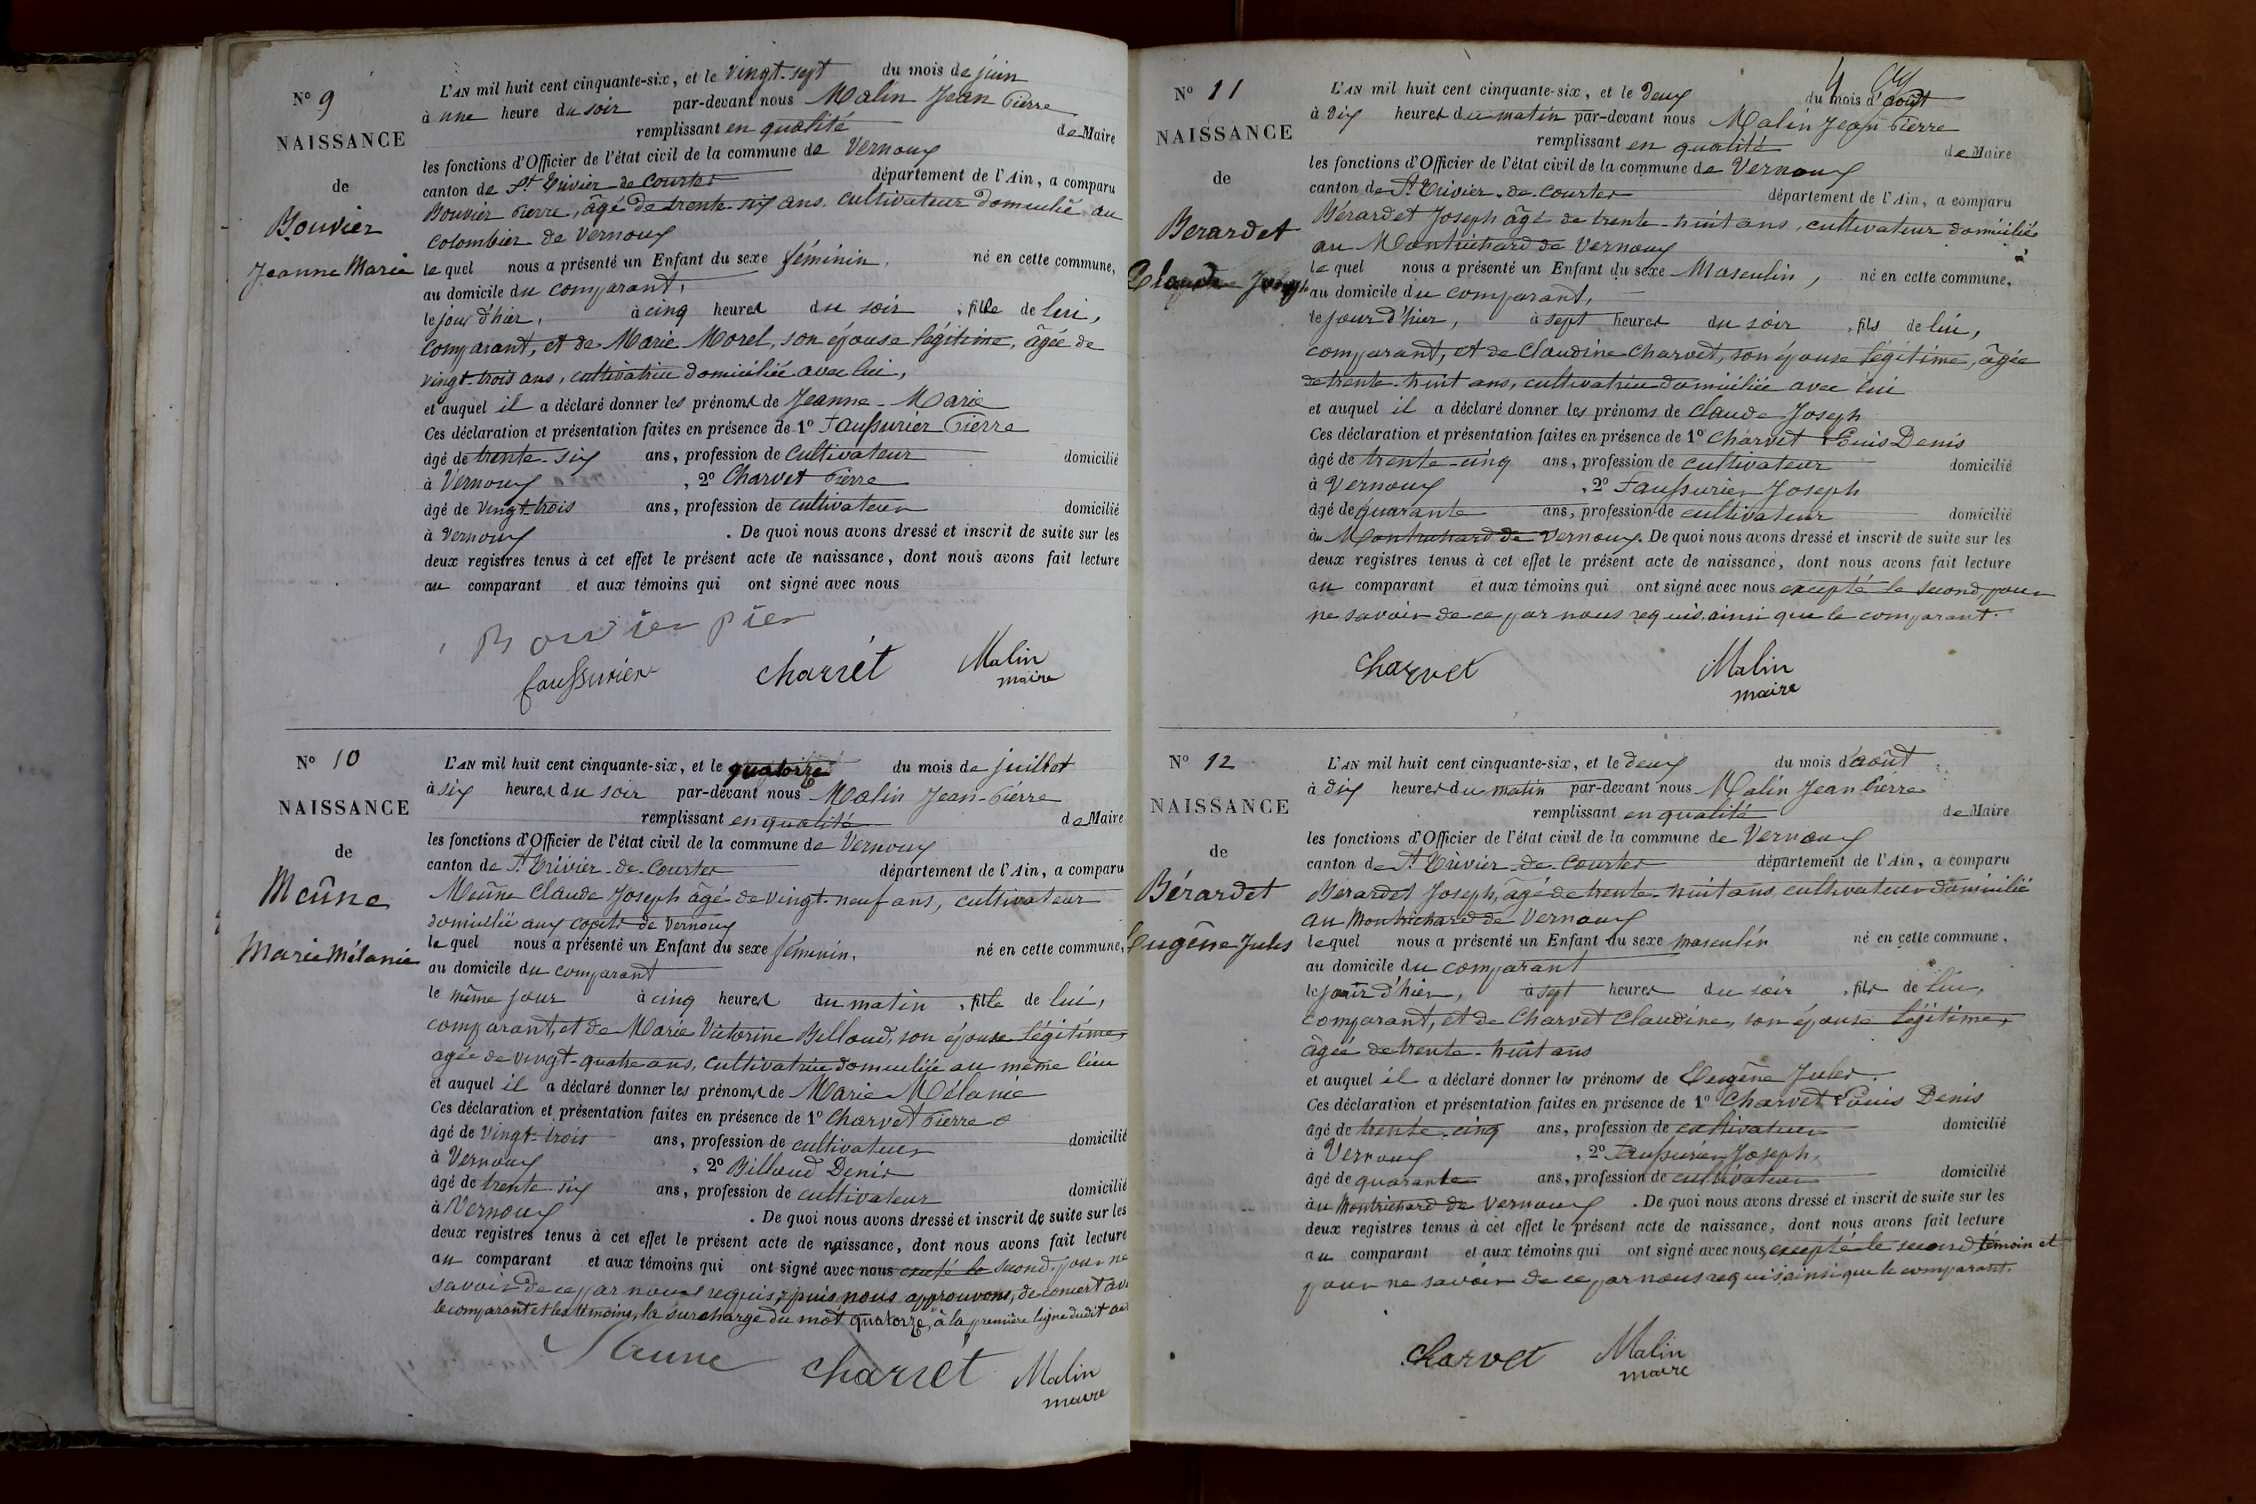 N° 9
NAISSANCE
de
Bouvier
Jeanne Marie
L'AN mil huit cent cinquante-six, et le vingt-sept du mois de juin
à une heure du soir par-devant nous Malin Jean Pierre
remplissant en qualité de Maire
les fonctions d'Officier de l'état civil de la commune de Vernoux
canton de St Trivier-de-Courtes département de l'Ain, a comparu
Bouvier Pierre, âgé de trente-six ans, cultivateur domicilié au
Colombier de Vernoux
lequel nous a présenté un Enfant du sexe féminin, né en cette commune,
au domicile du comparant,
le jour d'hier, à cinq heures du soir, fille de lui,
comparant, et de Marie Morel, son épouse légitime, âgée de
vingt-trois ans, cultivatrice domiciliée avec lui,
et auquel il a déclaré donner les prénoms de Jeanne-Marie
Ces déclaration et présentation faites en présence de 1° Faussurier Pierre
âgé de trente-six ans, profession de cultivateur domicilié
à Vernoux, 2° Charvet Pierre
âgé de vingt-trois ans, profession de cultivateur domicilié
à Vernoux. De quoi nous avons dressé et inscrit de suite sur les
deux registres tenus à cet effet le présent acte de naissance, dont nous avons fait lecture
au comparant et aux témoins qui ont signé avec nous
Bouvier pier
faussurier charvet Malin
maire
N° 10
NAISSANCE
de
Meûne
Marie Mélanie
L'AN mil huit cent cinquante-six, et le quatorze du mois de juillet
à six heures du soir par-devant nous Malin Jean-Pierre
remplissant en qualité de Maire
les fonctions d'Officier de l'état civil de la commune de Vernoux
canton de St Trivier-de-Courtes département de l'Ain, a comparu
Meûne Claude Joseph âgé de vingt-neuf ans, cultivateur
domicilié aux de Vernoux
lequel nous a présenté un Enfant du sexe féminin, né en cette commune,
au domicile du comparant
le même jour à cinq heures du matin, fille de lui,
comparant, et de Marie Victorine Billoud, son épouse légitime,
âgée de vingt-quatre ans, cultivatrice domiciliée au même lieu
et auquel il a déclaré donner les prénoms de Marie Mélanie
Ces déclaration et présentation faites en présence de 1° Charvet Pierre
âgé de vingt-trois ans, profession de cultivateur domicilié
à Vernoux, 2° Billoud Denis
âgé de trente-six ans, profession de cultivateur domicilié
à Vernoux. De quoi nous avons dressé et inscrit de suite sur les
deux registres tenus à cet effet le présent acte de naissance, dont nous avons fait lecture
au comparant et aux témoins qui ont signé avec nous le second, pour ne
savoir de ce par nous requis, puis nous approuvons, de concert avec
le comparant et les témoins, la surcharge du mot quatorze, à la première ligne dudit acte
Meune charvet Malin
maire
N° 11
NAISSANCE
de
Berardet
Claude Joseph
L'AN mil huit cent cinquante-six, et le deux du mois d'août
à dix heures du matin par-devant nous Malin Jean Pierre
remplissant en qualité de Maire
les fonctions d'Officier de l'état civil de la commune de Vernoux
canton de St Trivier-de-Courtes département de l'Ain, a comparu
Bérardet Joseph âgé de trente-huit ans, cultivateur domicilié
au Montrichard de Vernoux
lequel nous a présenté un Enfant du sexe Masculin, né en cette commune,
au domicile du comparant,
le jour d'hier, à sept heures du soir, fils de lui,
comparant, et de Claudine Charvet, son épouse légitime, âgée
de trente-huit ans, cultivatrice domiciliée avec lui
et auquel il a déclaré donner les prénoms de Claude Joseph
Ces déclaration et présentation faites en présence de 1° Charvet Louis Denis
âgé de trente-cinq ans, profession de cultivateur domicilié
à Vernoux, 2° Faussurier Joseph
âgé de quarante ans, profession de cultivateur domicilié
au Montrichard de Vernoux. De quoi nous avons dressé et inscrit de suite sur les
deux registres tenus à cet effet le présent acte de naissance, dont nous avons fait lecture
au comparant et aux témoins qui ont signé avec nous excepté le second, pour
ne savoir de ce par nous requis, ainsi que le comparant.
charvet Malin
maire
N° 12
NAISSANCE
de
Bérardet
Eugène Jules
L'AN mil huit cent cinquante-six, et le deux du mois d'août
à dix heures du matin par-devant nous Malin Jean Pierre
remplissant en qualité de Maire
les fonctions d'Officier de l'état civil de la commune de Vernoux
canton de St Trivier-de-Courtes département de l'Ain, a comparu
Bérardet Joseph, âgé de trente-huit ans, cultivateur domicilié
au Montrichard de Vernoux
lequel nous a présenté un Enfant du sexe masculin né en cette commune,
au domicile du comparant
le jour d'hier, à sept heures du soir, fils de lui,
comparant, et de Charvet Claudine, son épouse légitime,
âgée de trente-huit ans
et auquel il a déclaré donner les prénoms de Eugène Jules
Ces déclaration et présentation faites en présence de 1° Charvet Louis Denis
âgé de trente-cinq ans, profession de cultivateur domicilié
à Vernoux, 2° Faussurier Joseph,
âgé de quarante ans, profession de cultivateur domicilié
au Montrichard de Vernoux. De quoi nous avons dressé et inscrit de suite sur les
deux registres tenus à cet effet le présent acte de naissance, dont nous avons fait lecture
au comparant et aux témoins qui ont signé avec nous, excepté le second témoin et
pour ne savoir de ce par nous requis ainsi que le comparant.
charvet Malin
maire